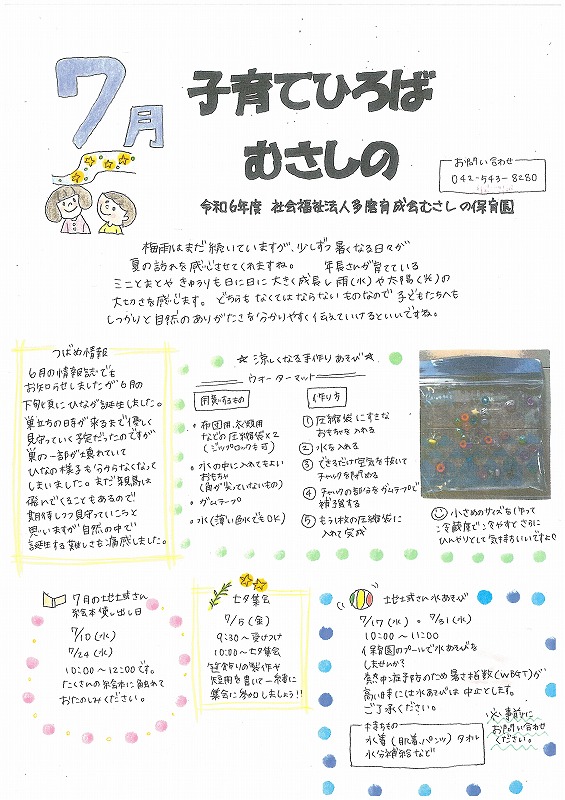 7月
子育てひろば
むさしの
お問い合わせ
042-543-8280
令和6年度 社会福祉法人多磨育成会むさしの保育園
梅雨はまだ続いていますが、少しずつ暑くなる日々が
夏の訪れを感じさせてくれますね。 年長さんが育てている
ミニとまとや きゅうりも日に日に大きく成長し雨(水)や太陽(光)の
大切さを感じます。どちらもなくてはならないものなので子どもたちへも
しっかりと自然のありがたさを分かりやすく伝えていけるといいですね。
つばめ情報
6月の情報誌でも
お知らせしましたが6月の
下旬頃にひなが誕生しました。
巣立ちの日が来るまで優しく
見守っていく予定だったのですが
巣の一部が壊れていて
ひなの様子も分からなくなって
しまいました。まだ親鳥は
飛んでくることもあるので
期待しつつ見守っていこうと
思いますが自然の中で
誕生する難しさも痛感しました。
☆涼しくなる手作りあそび☆
ウォーターマット
用意するもの
・布団用、衣類用
などの圧縮袋×2
(ジップロックも可)
・水の中に入れてもよい
おもちゃ
(角が尖っていないもの)
・ガムテープ
・水(薄い色水でもOK)
作り方
①圧縮袋にすきな
おもちゃを入れる
②水を入れる
③できるだけ空気を抜いて
チャックを閉める
④チャックの部分をガムテープで
補強する
⑤もう1枚の圧縮袋に
入れて完成
小さめのサイズも作って
冷蔵庫で冷やすとさらに
ひんやりとして気持ちいいですよ
7月の地域さん
絵本貸し出し日
7/10(水)
7/24(水)
10:00～12:00です。
たくさんの絵本に触れて
おたのしみください。
七夕集会
7/5(金)
9:30～受けつけ
10:00～七夕集会
笹飾りの製作や
短冊を書いて一緒に
集会に参加しましょう!!
地域さん水あそび
7/17(水)・7/31(水)
10:00～11:00
保育園のプールで水あそびを
しませんか?
熱中症予防のため暑さ指数(WBGT)が
高い時には水あそびは中止とします。
ご了承ください。
持ちもの
水着(肌着、パンツ)タオル
水分補給など
※事前に
お問い合わせ
ください。